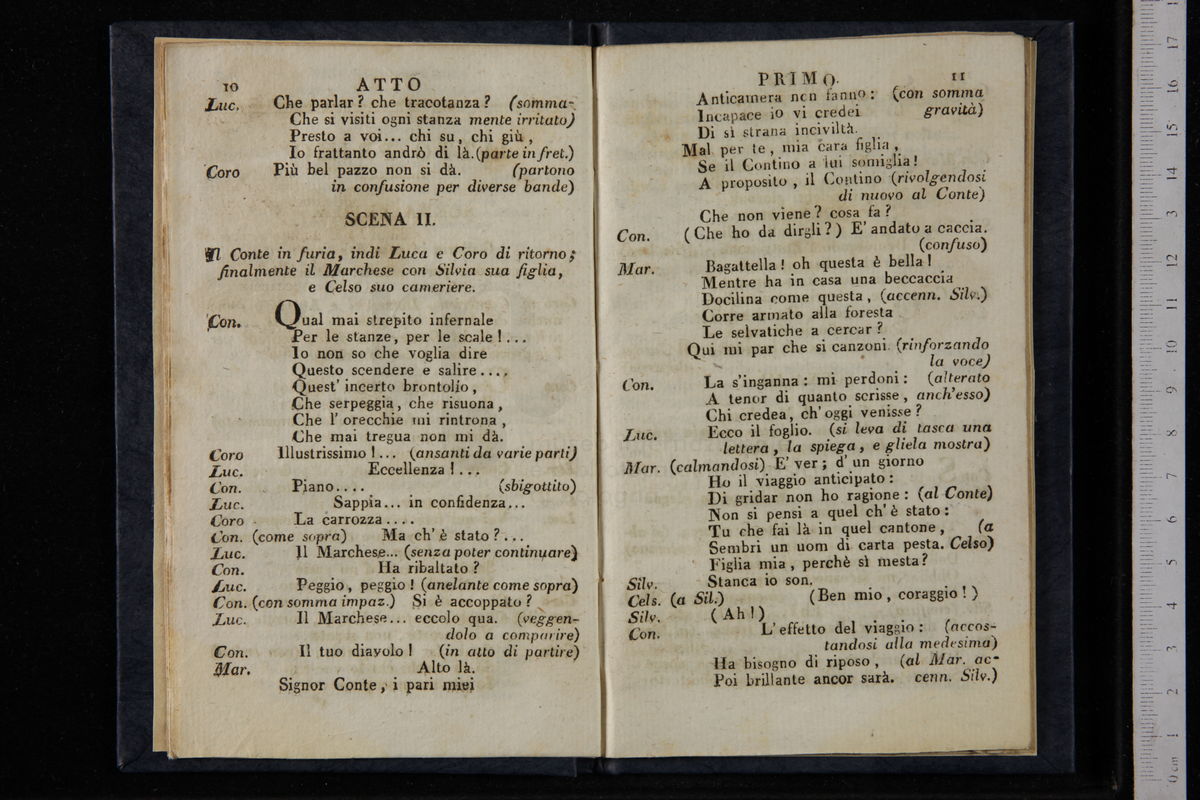 10 ATTO
Luc. Che parlar? che tracotanza? (somma-
Che si visiti ogni stanza mente irritato)
Presto a voi... chi su, chi giù,
Io frattanto andrò di là. (parte in fret.)
Coro Più bel pazzo non si dà. (partono
in confusione per diverse bande)
SCENA II.
Il Conte in furia, indi Luca e Coro di ritorno;
finalmente il Marchese con Silvia sua figlia,
e Celso suo cameriere.
Con. Qual mai strepito infernale
Per le stanze, per le scale!...
Io non so che voglia dire
Questo scendere e salire....
Quest' incerto brontolio,
Che serpeggia, che risuona,
Che l' orecchie mi rintrona,
Che mai tregua non mi dà.
Coro Illustrissimo!... (ansanti da varie parti)
Luc. Eccellenza!...
Con. Piano.... (sbigottito)
Luc. Sappia... in confidenza...
Coro La carrozza....
Con. (come sopra) Ma ch' è stato?...
Luc. Il Marchese... (senza poter continuare)
Con. Ha ribaltato?
Luc. Peggio, peggio! (anelante come sopra)
Con. (con somma impaz.) Si è accoppato?
Luc. Il Marchese... eccolo qua. (veggen-
dolo a comparire)
Con. Il tuo diavolo! (in atto di partire)
Mar. Alto là.
Signor Conte, i pari miei
PRIMO. 11
Anticamera non fanno: (con somma
Incapace io vi credei gravità)
Di sì strana inciviltà.
Mal per te, mia cara figlia,
Se il Contino a lui somiglia!
A proposito, il Contino (rivolgendosi
di nuovo al Conte)
Che non viene? cosa fa?
Con. (Che ho da dirgli?) E' andato a caccia.
(confuso)
Mar. Bagattella! oh questa è bella!
Mentre ha in casa una beccaccia
Docilina come questa, (accenn. Silv.)
Corre armato alla foresta
Le selvatiche a cercar?
Qui mi par che si canzoni. (rinforzando
la voce)
Con. La s'inganna: mi perdoni: (alterato
A tenor di quanto scrisse, anch'esso)
Chi credea, ch' oggi venisse?
Luc. Ecco il foglio. (si leva di tasca una
lettera, la spiega, e gliela mostra)
Mar. (calmandosi) E' ver; d' un giorno
Ho il viaggio anticipato:
Di gridar non ho ragione: (al Conte)
Non si pensi a quel ch' è stato:
Tu che fai là in quel cantone, (a
Sembri un uom di carta pesta. Celso)
Figlia mia, perchè sì mesta?
Silv. Stanca io son.
Cels. (a Sil.) (Ben mio, coraggio!)
Silv. (Ah!)
Con. L' effetto del viaggio: (accos-
tandosi alla medesima)
Ha bisogno di riposo, (al Mar. ac-
Poi brillante ancor sarà. cenn. Silv.)
0 cm 1 2 3 4 5 6 7 8 9 10 11 12 13 14 15 16 17